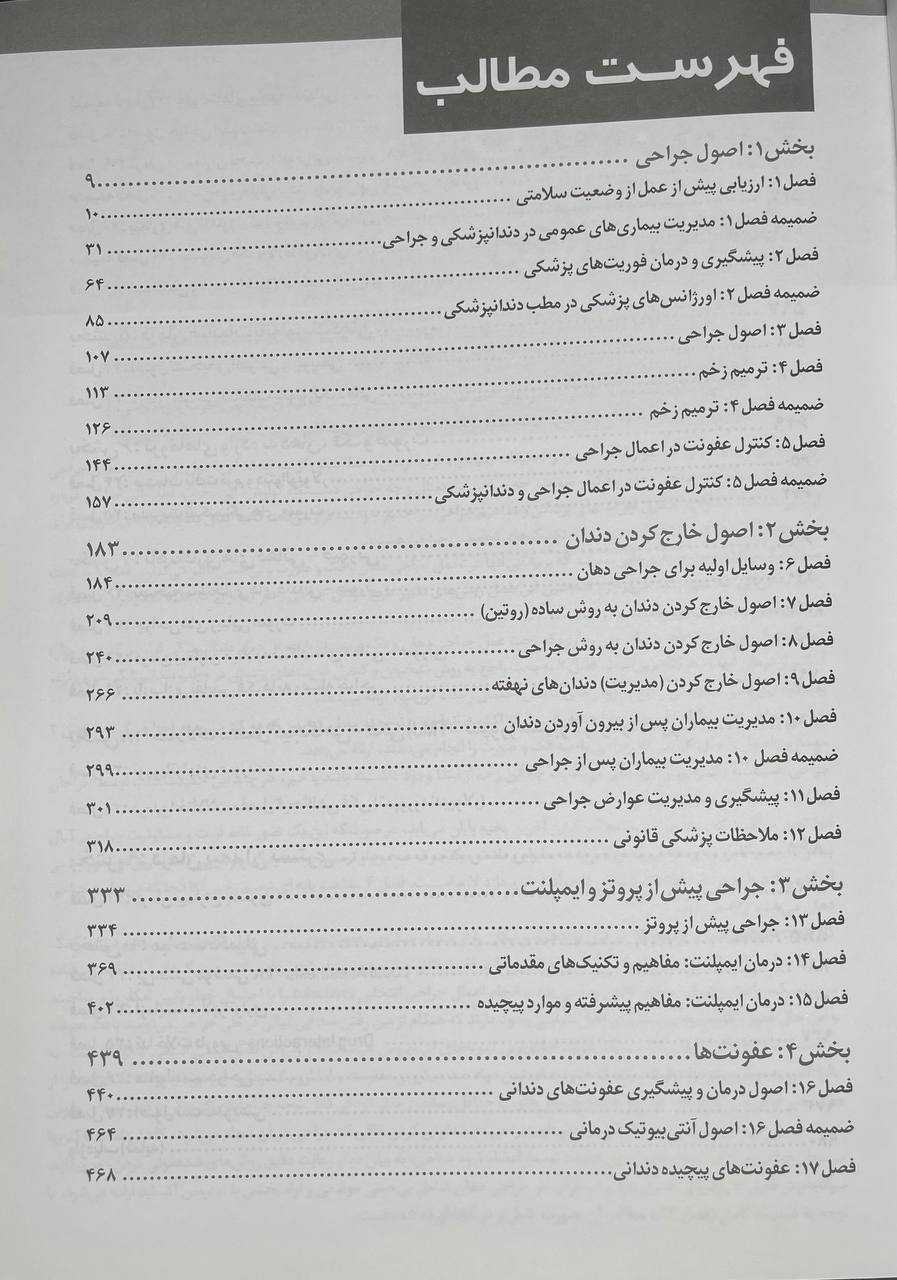 فهرست مطالب
بخش ۱: اصول جراحی ........ ۹
فصل ۱: ارزیابی پیش از عمل از وضعیت سلامتی ........ ۱۰
ضمیمه فصل ۱: مدیریت بیماری‌های عمومی در دندانپزشکی و جراحی ........ ۳۱
فصل ۲: پیشگیری و درمان فوریت‌های پزشکی ........ ۶۴
ضمیمه فصل ۲: اورژانس‌های پزشکی در مطب دندانپزشکی ........ ۸۵
فصل ۳: اصول جراحی ........ ۱۰۷
فصل ۴: ترمیم زخم ........ ۱۱۳
ضمیمه فصل ۴: ترمیم زخم ........ ۱۲۶
فصل ۵: کنترل عفونت در اعمال جراحی ........ ۱۴۴
ضمیمه فصل ۵: کنترل عفونت در اعمال جراحی و دندانپزشکی ........ ۱۵۷
بخش ۲: اصول خارج کردن دندان ........ ۱۸۳
فصل ۶: وسایل اولیه برای جراحی دهان ........ ۱۸۴
فصل ۷: اصول خارج کردن دندان به روش ساده (روتین) ........ ۲۰۹
فصل ۸: اصول خارج کردن دندان به روش جراحی ........ ۲۴۰
فصل ۹: اصول خارج کردن (مدیریت) دندان‌های نهفته ........ ۲۶۶
فصل ۱۰: مدیریت بیماران پس از بیرون آوردن دندان ........ ۲۹۳
ضمیمه فصل ۱۰: مدیریت بیماران پس از جراحی ........ ۲۹۹
فصل ۱۱: پیشگیری و مدیریت عوارض جراحی ........ ۳۰۱
فصل ۱۲: ملاحظات پزشکی قانونی ........ ۳۱۸
بخش ۳: جراحی پیش از پروتز و ایمپلنت ........ ۳۳۳
فصل ۱۳: جراحی پیش از پروتز ........ ۳۳۴
فصل ۱۴: درمان ایمپلنت: مفاهیم و تکنیک‌های مقدماتی ........ ۳۶۹
فصل ۱۵: درمان ایمپلنت: مفاهیم پیشرفته و موارد پیچیده ........ ۴۰۲
بخش ۴: عفونت‌ها ........ ۴۳۹
فصل ۱۶: اصول درمان و پیشگیری عفونت‌های دندانی ........ ۴۴۰
ضمیمه فصل ۱۶: اصول آنتی‌بیوتیک درمانی ........ ۴۶۴
فصل ۱۷: عفونت‌های پیچیده دندانی ........ ۴۶۸